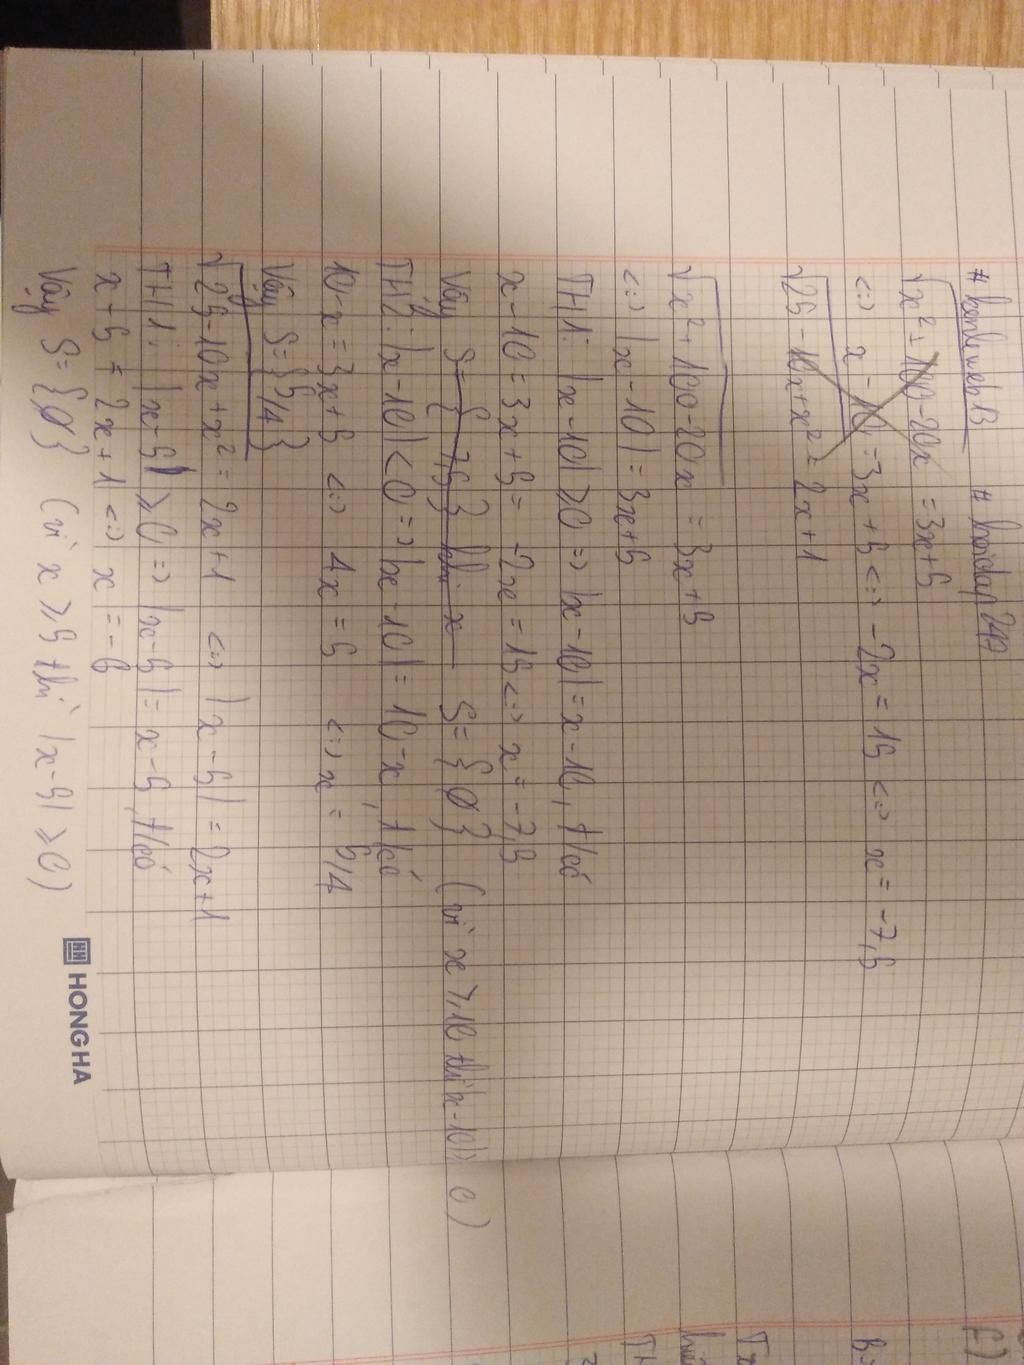 # kenlewebB # hoidap247
√x² + 100 - 20x = 3x+5
<=> x - 10 = 3x + 5 <=> -2x = 15 <=> x = -7,5
√25 - 10x + x² = 2x + 1
√x² + 100 - 20x = 3x + 5
<=> |x - 10| = 3x + 5
TH1: |x - 10| ≥ 0 => |x - 10| = x - 10, t/có
x - 10 = 3x + 5 = -2x = 15 <=> x = -7,5
Vậy S = { 7,5 } khi x S = {∅} (vì x ≥ 10 thì |x - 10| ≥ 0)
TH2: |x - 10| < 0 => |x - 10| = 10 - x, t/có
10 - x = 3x + 5 <=> 4x = 5 <=> x = 5/4
Vậy S = {5/4}
√25 - 10x + x² = 2x + 1 <=> |x - 5| = 2x + 1
TH1: |x - 5| ≥ 0 => |x - 5| = x - 5, t/có
x - 5 = 2x + 1 <=> x = -6
Vậy S = {∅} (vì x ≥ 5 thì |x - 5| ≥ 0)
HONG HA